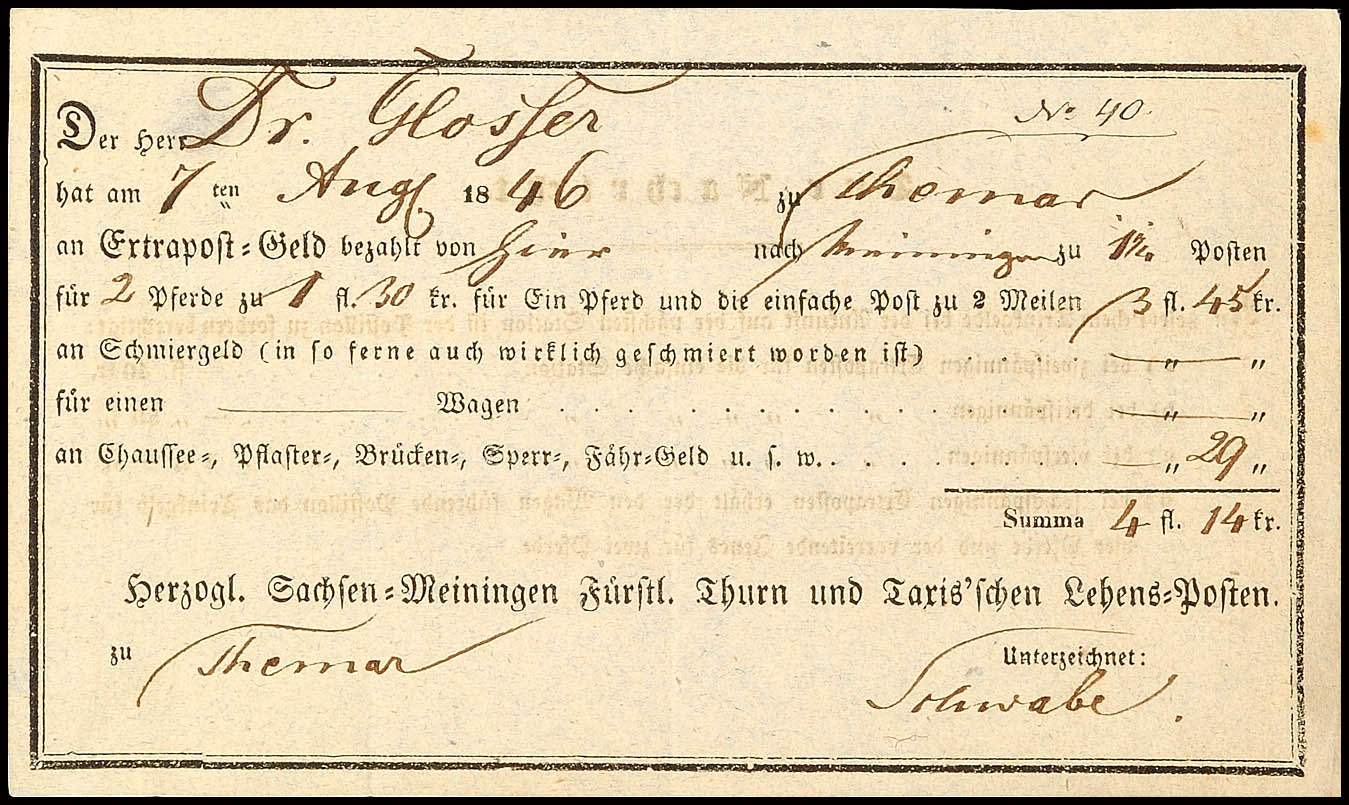 № 40.
Der Herr Dr. Glosser
hat am 7 ten Augſ. 1846 zu Themar
an Extrapoſt-Geld bezahlt von hier nach Meiningen zu 1¼ Poſten
für 2 Pferde zu 1 fl. 30 kr. für Ein Pferd und die einfache Poſt zu 2 Meilen 3 fl. 45 kr.
an Schmiergeld (in ſo ferne auch wirklich geſchmiert worden iſt) . . . . . — „ — „
für einen ——— Wagen . . . . . . . . . . . . . — „ — „
an Chauſſee-, Pflaſter-, Brücken-, Sperr-, Fähr-Geld u. ſ. w. . . . . . . . . — „ 29 „
Summa 4 fl. 14 kr.
Herzogl. Sachſen-Meiningen Fürſtl. Thurn und Taxis'ſchen Lehens-Poſten.
zu Themar Unterzeichnet:
Schwabe.